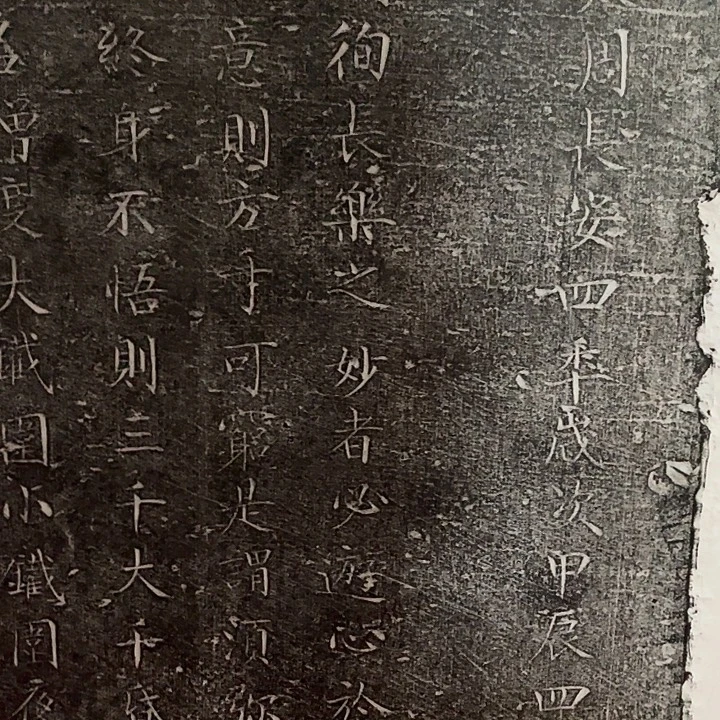 周長安四年歲次甲辰四
徇長樂之妙者必遊心於
意則方寸可窮是謂須弥
終身不悟則三千大千
僧度大鐵圍小鐵圍